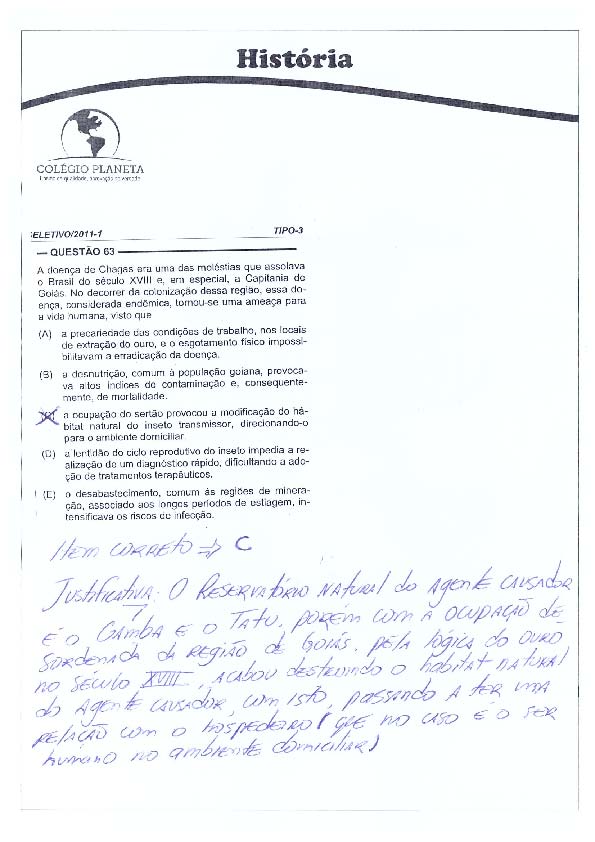 História
COLÉGIO PLANETA
ELETIVO/2011-1
TIPO-3
QUESTÃO 63
A doença de Chagas era uma das moléstias que assolava
o Brasil do século XVIII e, em especial, a Capitania de
Goiás. No decorrer da colonização dessa região, essa do-
ença, considerada endêmica, tornou-se uma ameaça para
a vida humana, visto que
(A) a precariedade das condições de trabalho, nos locais
de extração do ouro, e o esgotamento físico impossi-
bilitavam a erradicação da doença.
(B) a desnutrição, comum à população goiana, provoca-
va altos índices de contaminação e, consequente-
mente, de mortalidade.
(C) a ocupação do sertão provocou a modificação do há-
bitat natural do inseto transmissor, direcionando-o
para o ambiente domiciliar.
(D) a lentidão do ciclo reprodutivo do inseto impedia a re-
alização de um diagnóstico rápido, dificultando a ado-
ção de tratamentos terapêuticos.
(E) o desabastecimento, comum às regiões de minera-
ção, associado aos longos períodos de estiagem, in-
tensificava os riscos de infecção.
Item correto => C
Justificativa: O Reservatório natural do Agente causador
é o Gamba e o Tatu, porém com a ocupação de
sordenada da região de Goiás, pela lógica do ouro
no século XVIII, acabou destruindo o habitat natural
do Agente causador, com isto, passando a ter uma
relação com o hospedeiro (que no caso é o ser
humano no ambiente domiciliar)